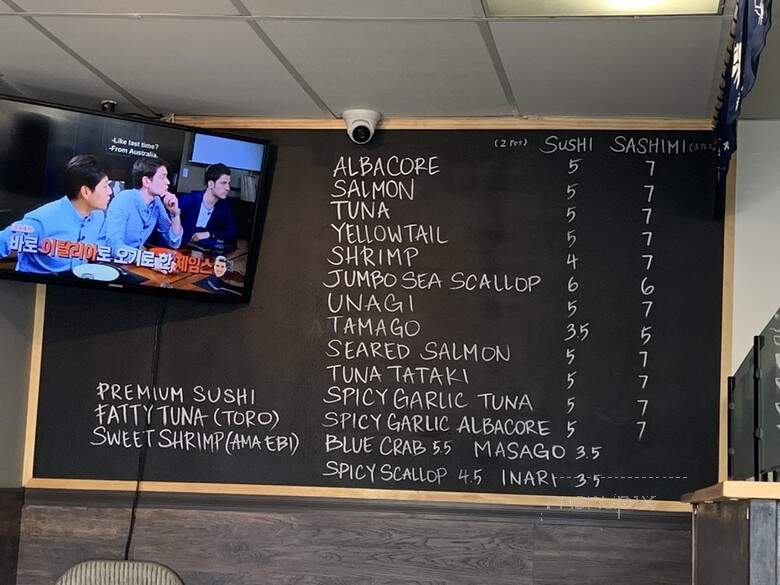 -Like last time?
-From Australia.
바로 이탈리아로 오기로 한 제임스
(2 PCS) SUSHI SASHIMI
ALBACORE 5 7
SALMON 5 7
TUNA 5 7
YELLOWTAIL 5 7
SHRIMP 4 7
JUMBO SEA SCALLOP 6 6
UNAGI 5 7
TAMAGO 3.5 5
SEARED SALMON 5 7
TUNA TATAKI 5 7
SPICY GARLIC TUNA 5 7
SPICY GARLIC ALBACORE 5 7
BLUE CRAB 5.5 MASAGO 3.5
SPICY SCALLOP 4.5 INARI 3.5
PREMIUM SUSHI
FATTY TUNA (TORO)
SWEET SHRIMP (AMA EBI)